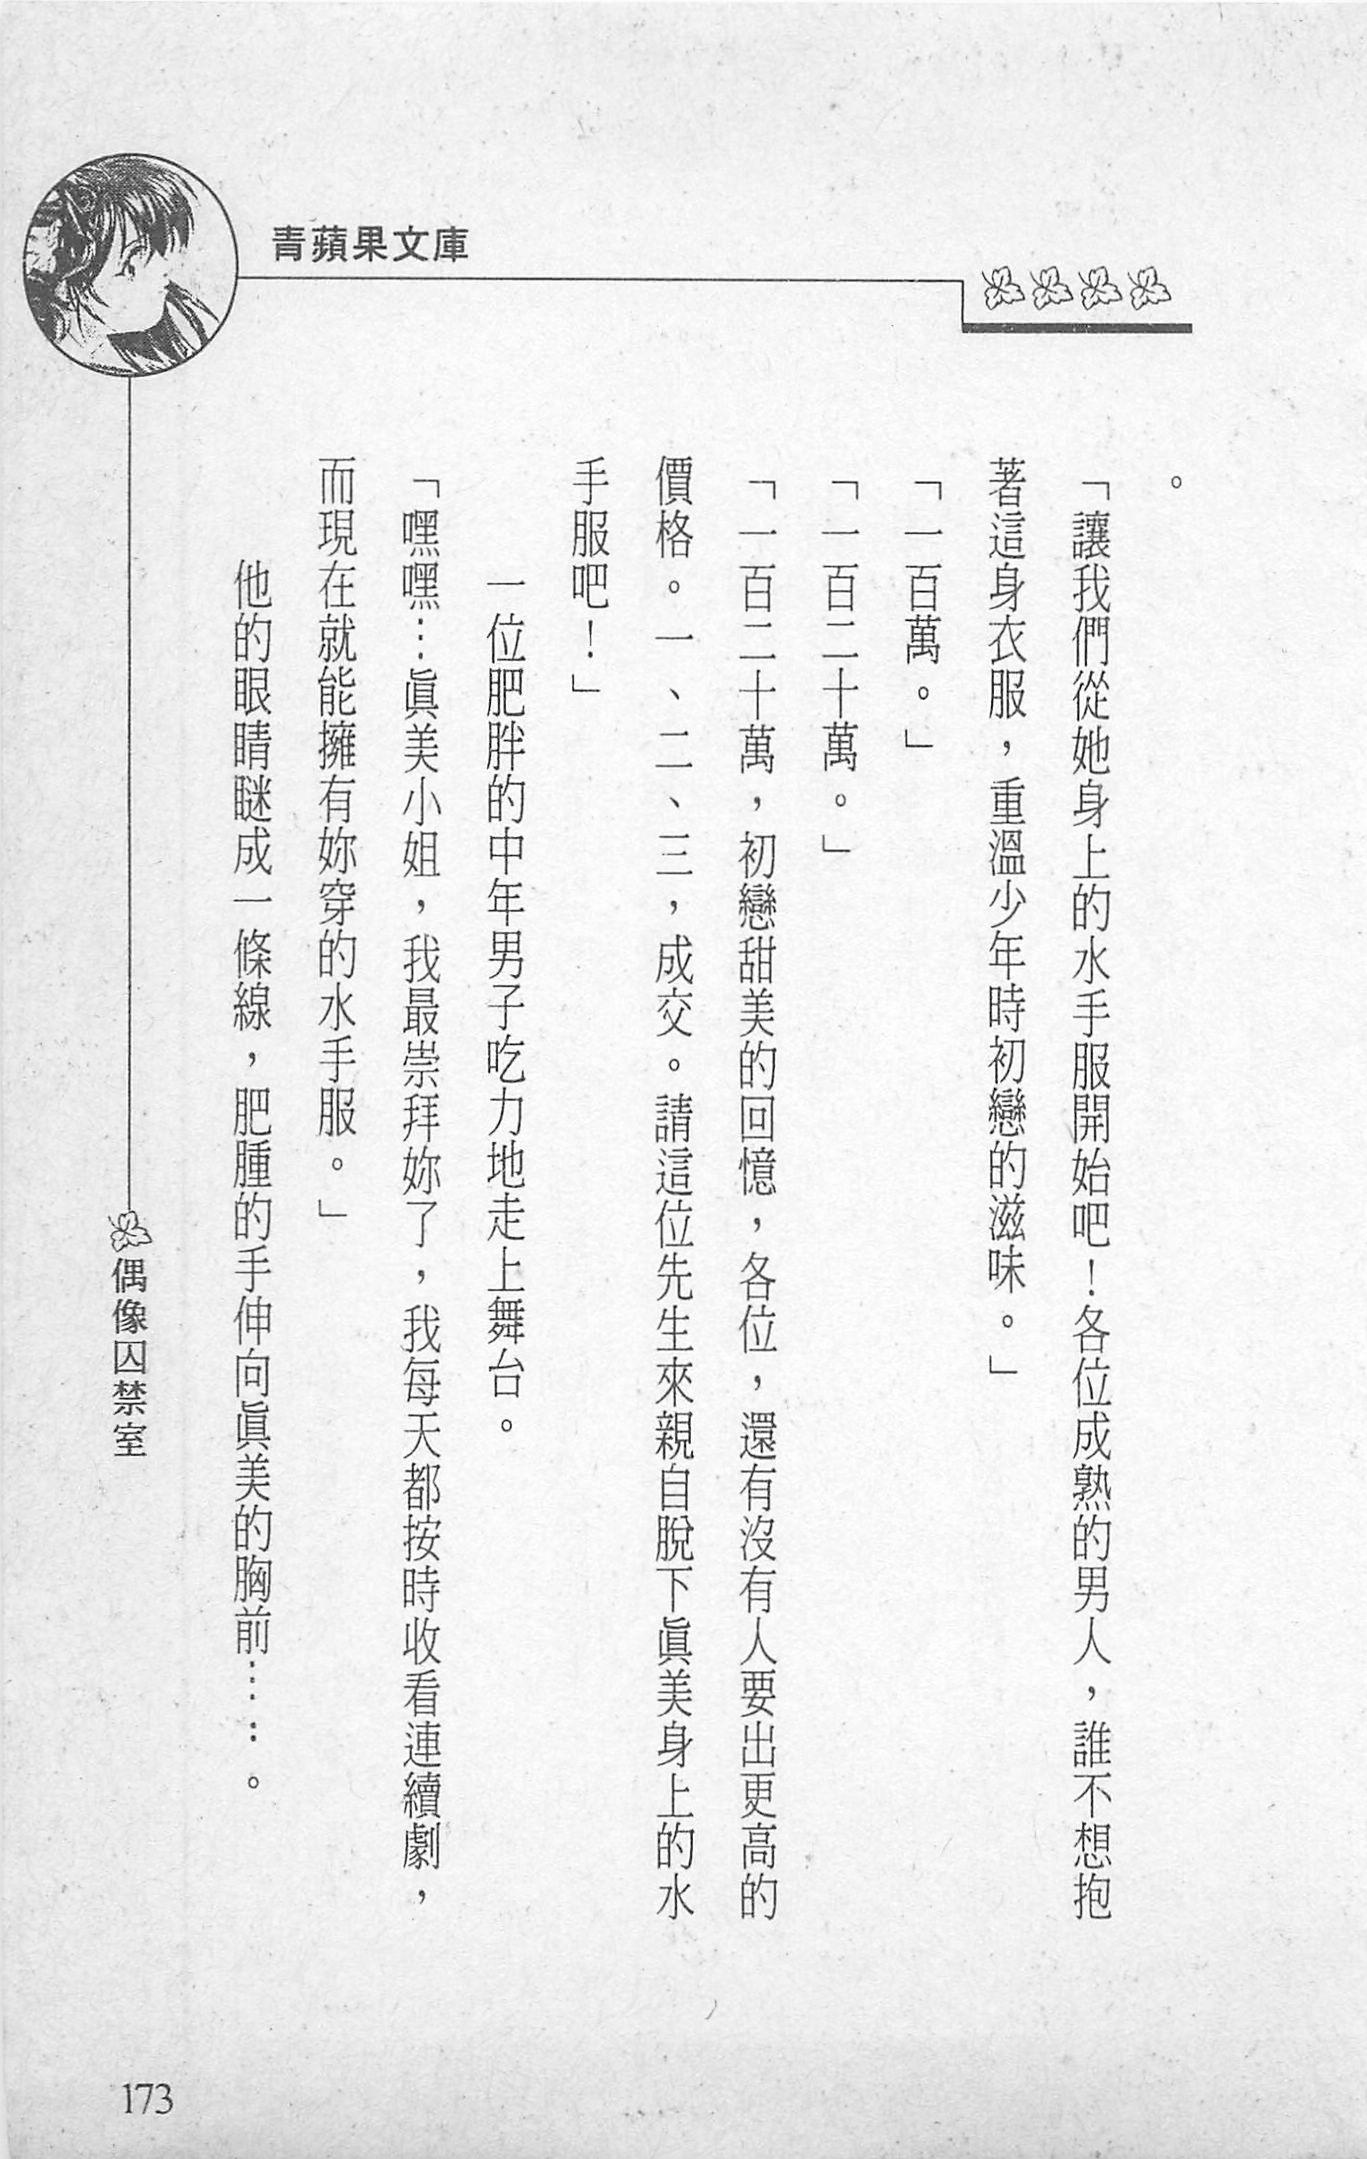 青蘋果文庫
。
「讓我們從她身上的水手服開始吧！各位成熟的男人，誰不想抱
著這身衣服，重溫少年時初戀的滋味。」
「一百萬。」
「一百二十萬。」
「一百二十萬，初戀甜美的回憶，各位，還有沒有人要出更高的
價格。一、二、三，成交。請這位先生來親自脫下眞美身上的水
手服吧！」
一位肥胖的中年男子吃力地走上舞台。
「嘿嘿…眞美小姐，我最崇拜妳了，我每天都按時收看連續劇，
而現在就能擁有妳穿的水手服。」
他的眼睛瞇成一條線，肥腫的手伸向眞美的胸前……。
偶像囚禁室
173